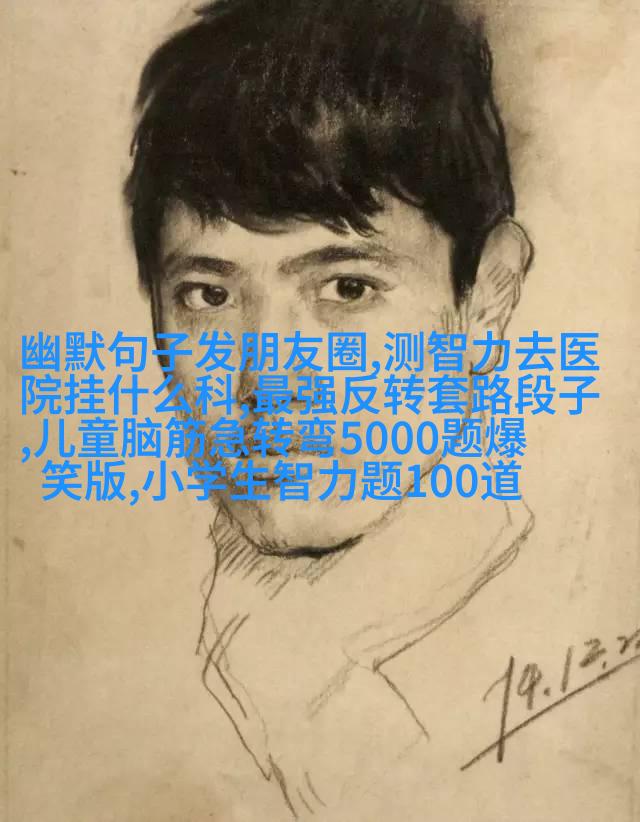 幽默句子发朋友圈,测智力去医
院挂什么科,最强反转套路段子
,儿童脑筋急转弯5000题爆
笑版,小学生智力题100道